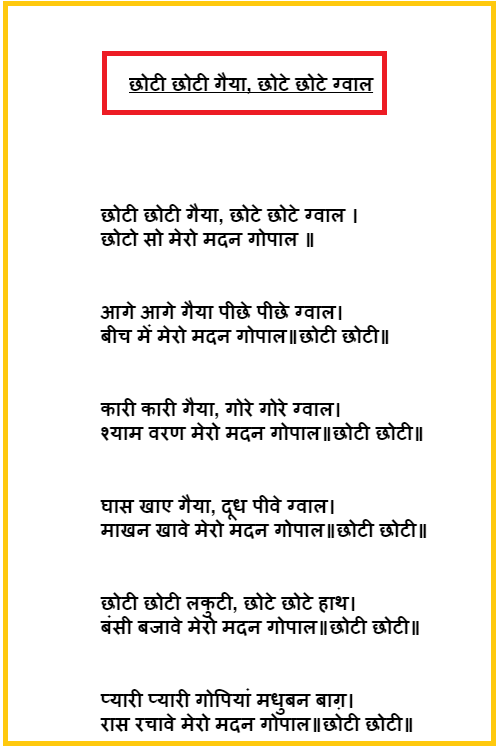 छोटी छोटी गैया, छोटे छोटे ग्वाल
छोटी छोटी गैया, छोटे छोटे ग्वाल ।
छोटो सो मेरो मदन गोपाल ॥
आगे आगे गैया पीछे पीछे ग्वाल।
बीच में मेरो मदन गोपाल॥छोटी छोटी॥
कारी कारी गैया, गोरे गोरे ग्वाल।
श्याम वरण मेरो मदन गोपाल॥छोटी छोटी॥
घास खाए गैया, दूध पीवे ग्वाल।
माखन खावे मेरो मदन गोपाल॥छोटी छोटी॥
छोटी छोटी लकुटी, छोटे छोटे हाथ।
बंसी बजावे मेरो मदन गोपाल॥छोटी छोटी॥
प्यारी प्यारी गोपियां मधुबन बाग़।
रास रचावे मेरो मदन गोपाल॥छोटी छोटी॥